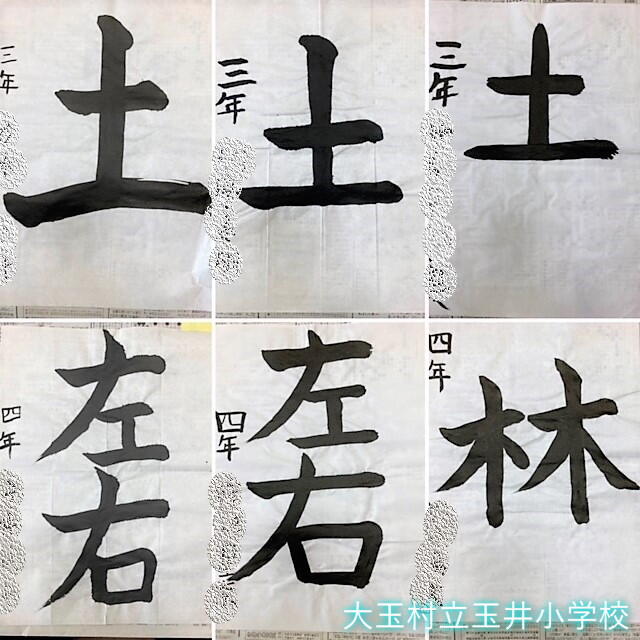 三年
土
三年
土
三年
土
四年
左右
四年
左右
四年
林
大玉村立玉井小学校